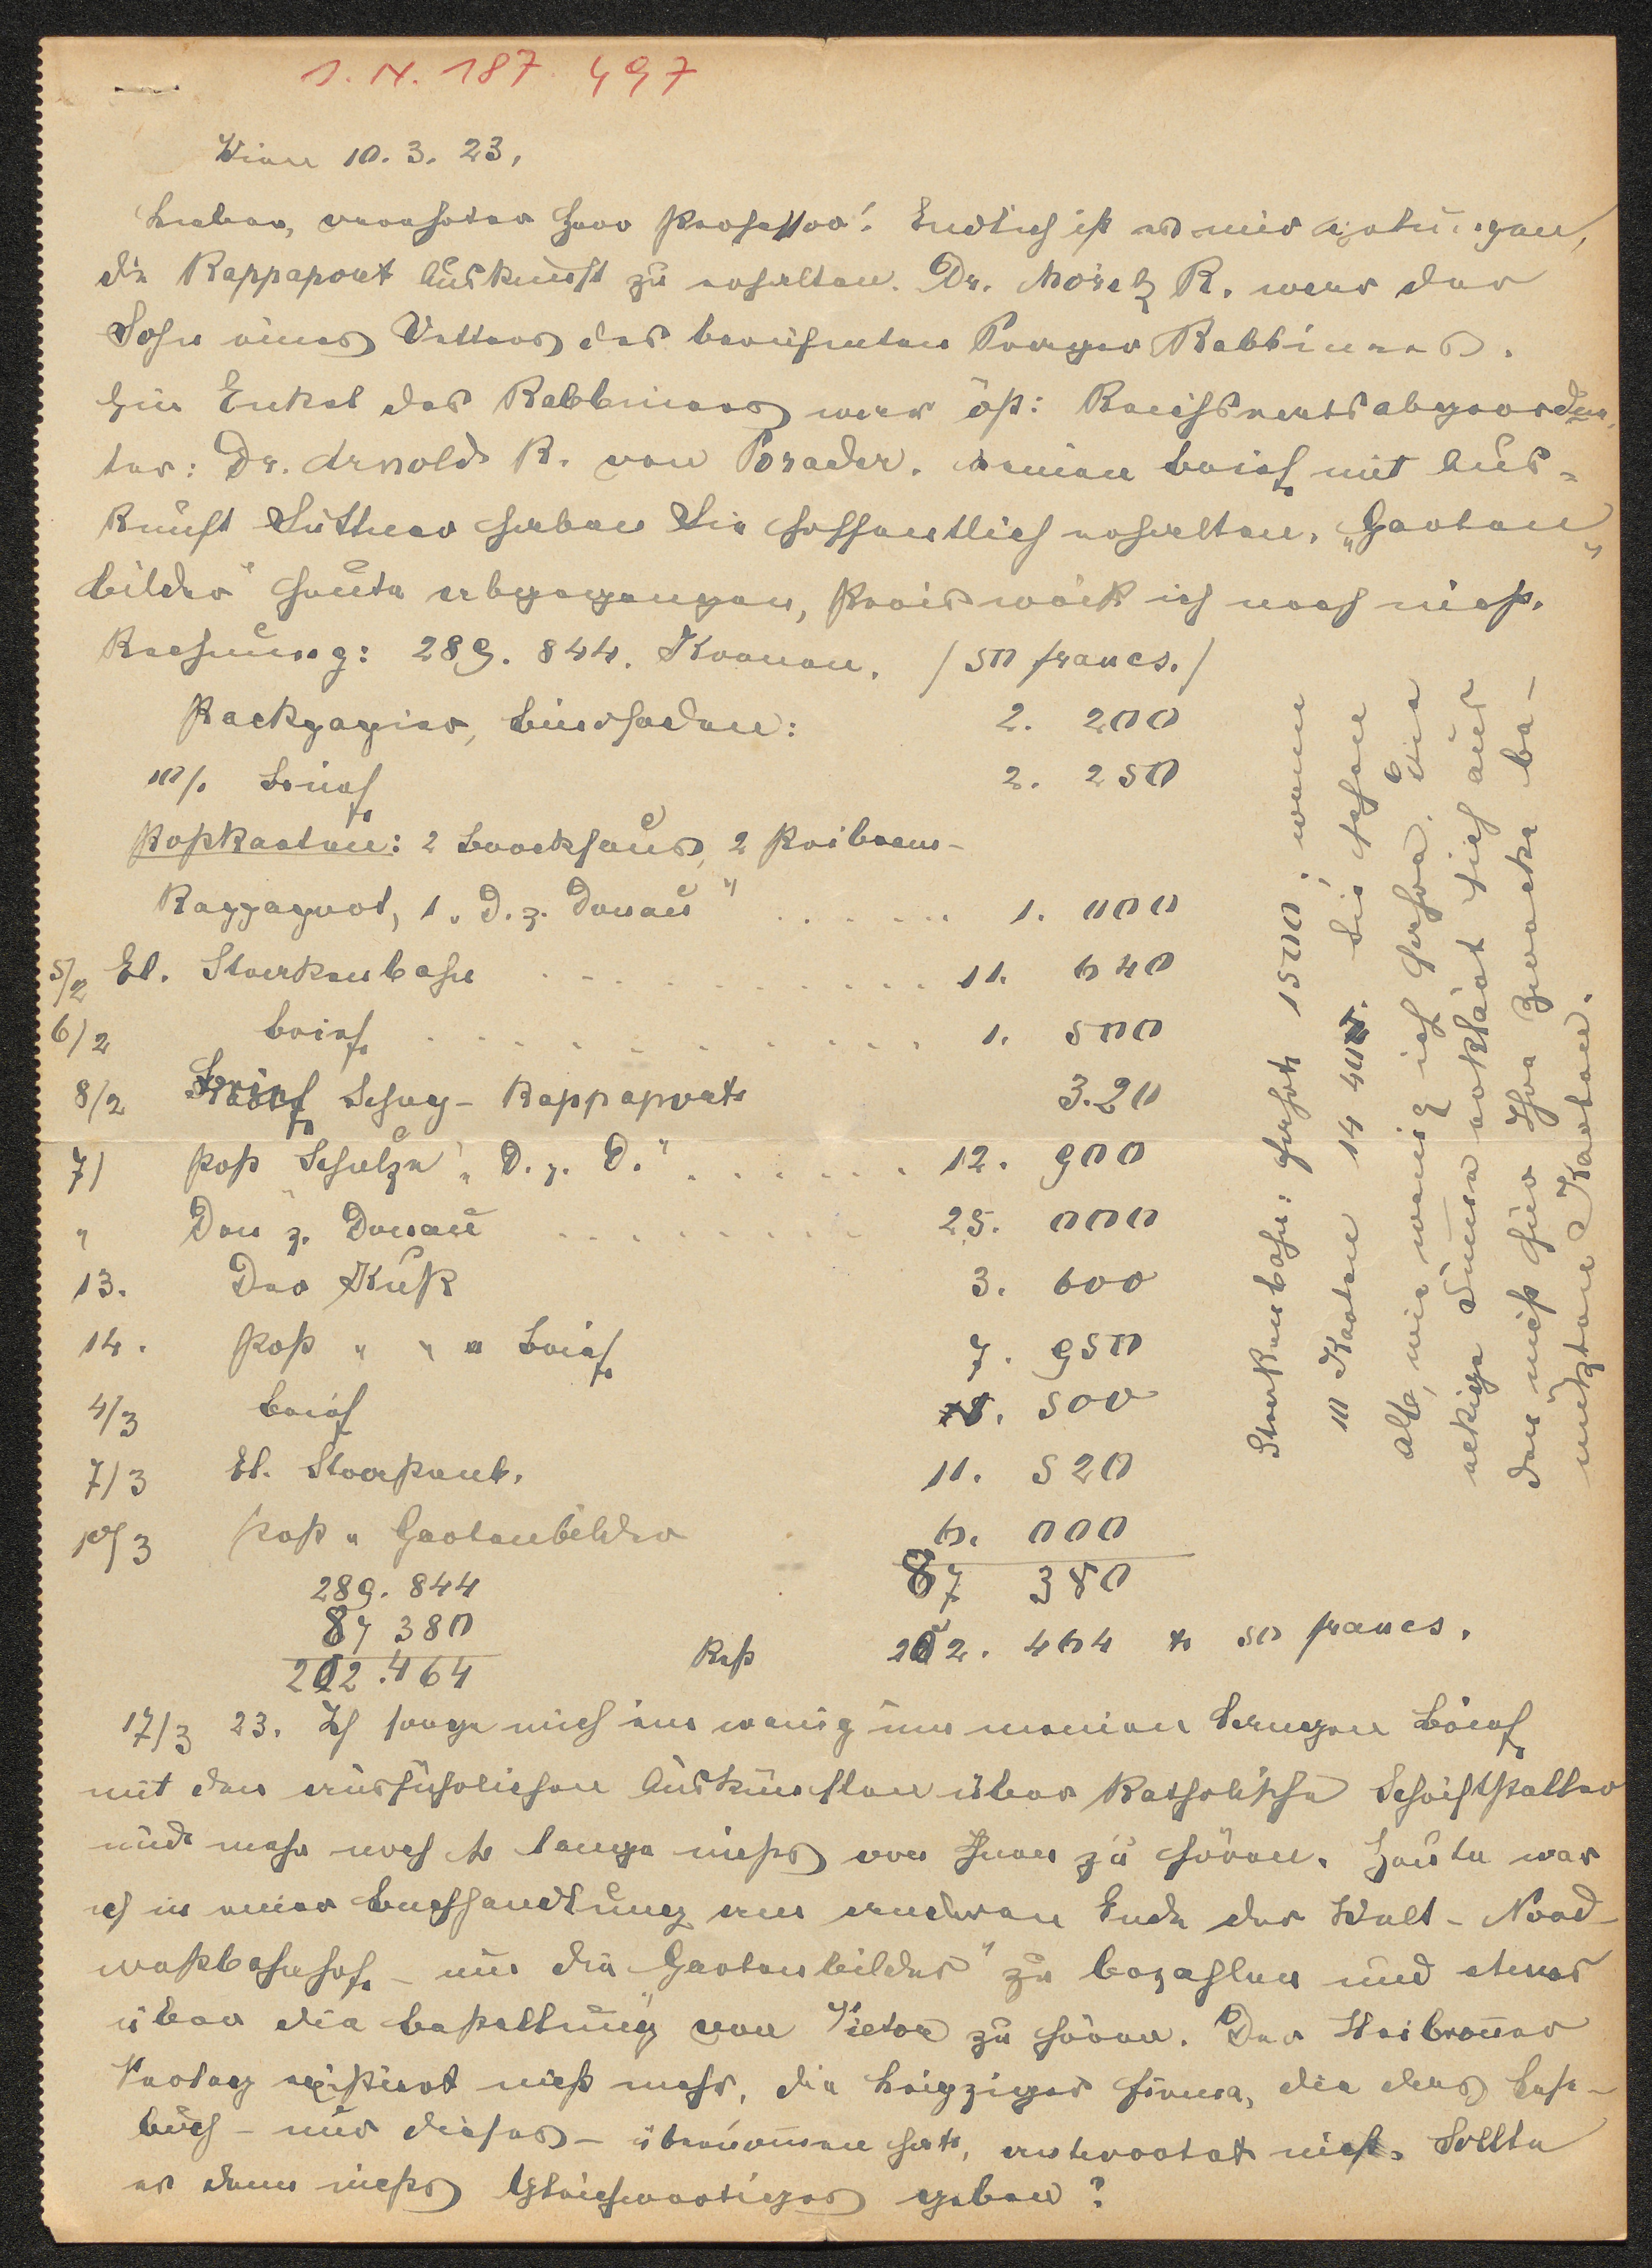 I. N. 187.497
Wien 10. 3. 23,
Lieber, verehrter Herr Professor! Endlich ist es mir gelungen,
die Rappaport Auskunft zu erhalten. Dr. Moritz R. war der
Sohn eines Vetters des berühmten Prager Rabbiners.
Ein Enkel des Rabbiners war öst: Reichsratsabgeordne-
ter: Dr. Arnold R. von Porader. Meinen Brief mit Aus=
kunft Suttner haben Sie hoffentlich erhalten. "Garten
bilder" heute abgegangen, Preis weiß ich noch nicht.
Rechnung: 289. 844. Kronen. / 50 francs. /
Packpapier, Bindfaden: 2. 200
10/. Brief 2. 250
Postkarten: 2 Brockhaus, 2 Preibram-
Rappaport, 1 "D. z. Donau" . . . . . . 1. 000
5/2 El. Starkenbahn . . . . . . . . . . . 11. 640
6/2 Brief . . . . . . . . . . . . 1. 500
8/2 Brief Schug- Rappaport 320
7/ Post Schulze "D. z. D." . . . . . . 12. 900
" Don z. Donau . . . . . . . . . 25. 000
13. Der Kuß 3. 600
14. Post " " " Brief 7. 950
4/3 Brief 1. 500
7/3 El. Starkenb. 11. 520
10/3 Post " Gartenbilder 6. 000
87 380
289. 844
87 380
202.464
Rest 202. 464 + 50 francs.
Starkenbahn: Fahrt 1500, wenn
10 Karten 14 400. Sie sehen
also, wie wenig ich fahre. Die
eckige Summe erklärt sich aus
den nicht für Ihre Zwecke be-
nützten Karten.
17/3 23. Ich sorge mich ein wenig um meinen langen Brief
mit den ausführlichen Auskünften über katholische Schriftsteller
und mehr noch so lange nichts von Ihnen zu hören. Heute war
ich in einer Buchhandlung am anderen Ende der Welt - Nord-
westbahnhof - um die "Gartenbilder" zu bezahlen und etwas
über die Bestellung von Victor zu hören. Der Heilbronner
Verlag existiert nicht mehr, die Leipziger Firma, die das Lese-
buch - nur dieses - übernommen hat, antwortet nicht. Sollte
es denn nichts Gleichwertiges geben?